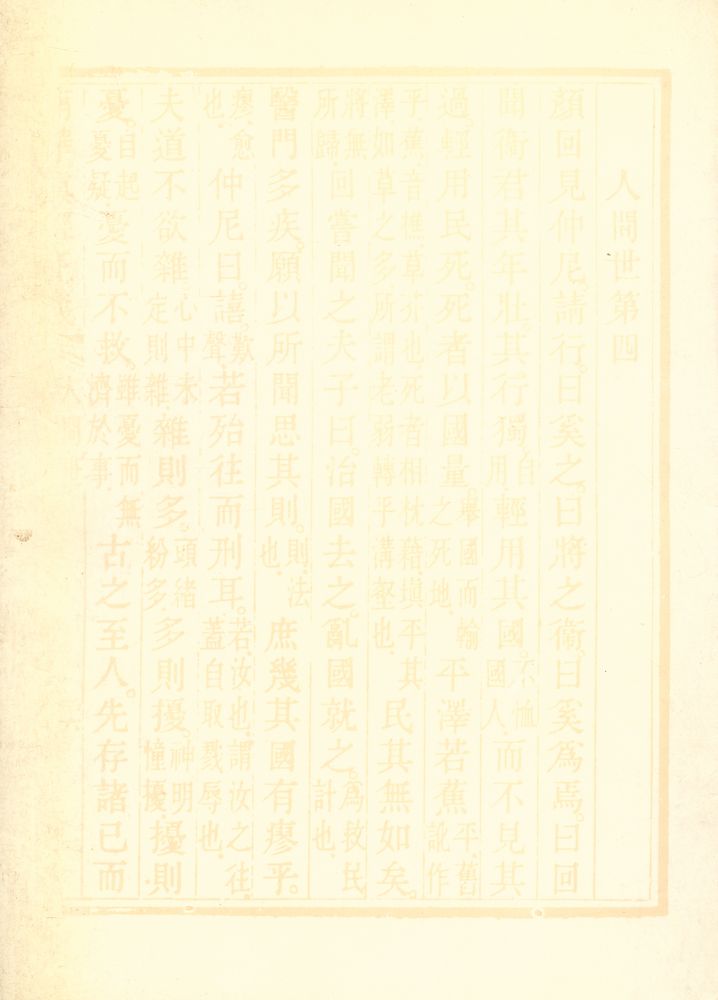 人間世第四
顏回見仲尼。請行。曰奚之。曰將之衛。曰奚爲焉。曰回
聞衛君其年壯。其行獨。自用輕用其國。不恤國人而不見其
過。輕用民死。死者以國量。舉國而輸之死地平澤若蕉平.舊訛作
乎.蕉音樵.草芥也.死者相枕藉.塡平其澤.如草之多.所謂老弱轉乎溝壑也.民其無如矣。
將無所歸.回嘗聞之夫子曰。治國去之。亂國就之。爲救民計也.
醫門多疾。願以所聞思其則。則.法也.庶幾其國有瘳乎。
瘳.愈也.仲尼曰。譆。歎聲.若殆往而刑耳。若.汝也.謂汝之往.蓋自取戮辱也.
夫道不欲雜心中未定則雜.雜則多。頭緒紛多.多則擾。神明憧擾.擾則
憂自起憂疑憂而不救。雖憂而無濟於事.古之至人。先存諸己而